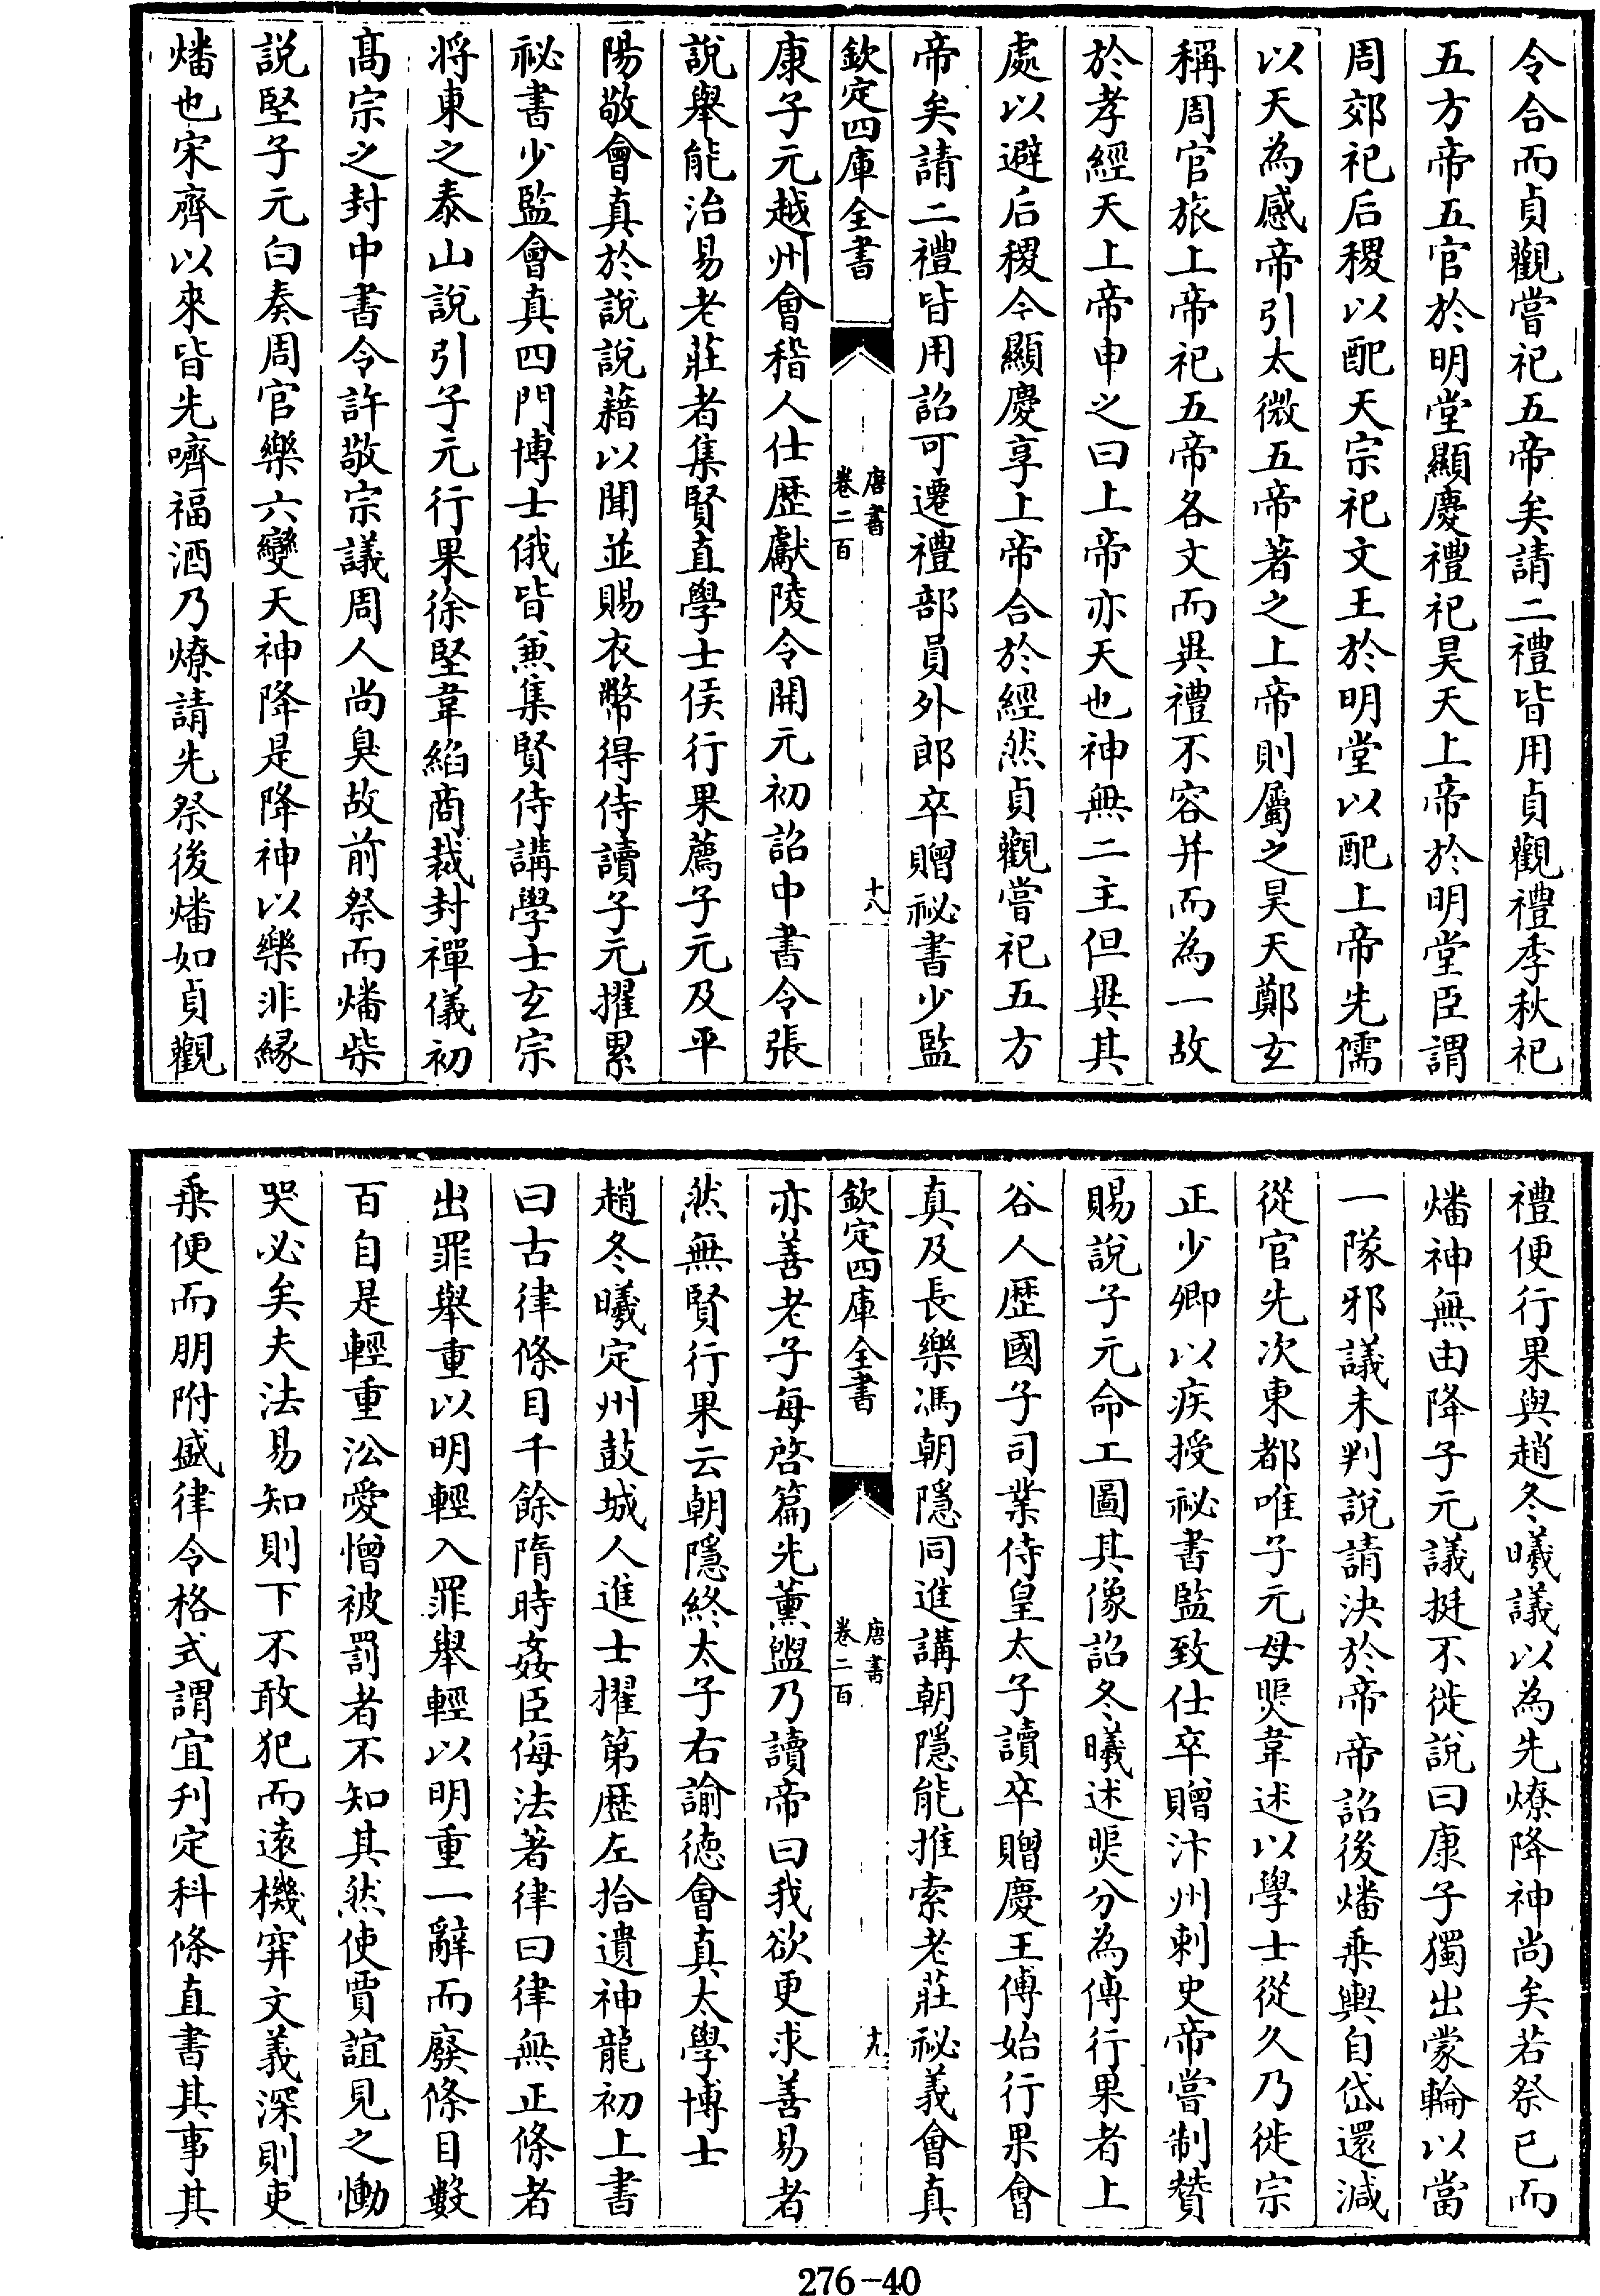 令合而貞觀嘗祀五帝矣請二禮皆用貞觀禮季秋祀
五方帝五官於明堂顯慶禮祀昊天上帝於明堂臣謂
周郊祀后稷以配天宗祀文王於明堂以配上帝先儒
以天為感帝引太微五帝著之上帝則屬之昊天鄭玄
稱周官旅上帝祀五帝各文而異禮不容并而為一故
於孝經天上帝申之曰上帝亦天也神無二主但異其
處以避后稷今顯慶享上帝合於經然貞觀嘗祀五方
帝矣請二禮皆用詔可遷禮部員外郎卒贈祕書少監
欽定四庫全書
唐書
卷二百
十八
康子元越州會稽人仕歴獻陵令開元初詔中書令張
說舉能治易老莊者集賢直學士侯行果薦子元及平
陽敬會真於說說藉以聞並賜衣幣得侍讀子元擢累
祕書少監會真四門博士俄皆兼集賢侍講學士玄宗
將東之泰山說引子元行果徐堅韋縚商裁封禪儀初
髙宗之封中書令許敬宗議周人尚臭故前祭而燔柴
說堅子元白奏周官樂六變天神降是降神以樂非縁
燔也宋齊以來皆先嚌福酒乃燎請先祭後燔如貞觀
禮便行果與趙冬曦議以為先燎降神尚矣若祭已而
燔神無由降子元議挺不徙說曰康子獨出蒙輪以當
一隊邪議未判說請決於帝帝詔後燔乗輿自岱還減
從官先次東都唯子元母煚韋述以學士從久乃徙宗
正少卿以疾授祕書監致仕卒贈汴州刺史帝嘗制贊
賜說子元命工圖其像詔冬曦述煚分為傅行果者上
谷人歴國子司業侍皇太子讀卒贈慶王傅始行果會
真及長樂馮朝隱同進講朝隱能推索老莊祕義會真
欽定四庫全書
唐書
卷二百
十九
亦善老子每啓篇先薰盥乃讀帝曰我欲更求善易者
然無賢行果云朝隱終太子右諭徳會真太學博士
趙冬曦定州鼓城人進士擢第歴左拾遺神龍初上書
曰古律條目千餘隋時姦臣侮法著律曰律無正條者
出罪舉重以明輕入罪舉輕以明重一辭而廢條目數
百自是輕重㳂愛憎被罰者不知其然使賈誼見之慟
哭必矣夫法易知則下不敢犯而遠機穽文義深則吏
乗便而朋附盛律令格式謂宜刋定科條直書其事其
276-40